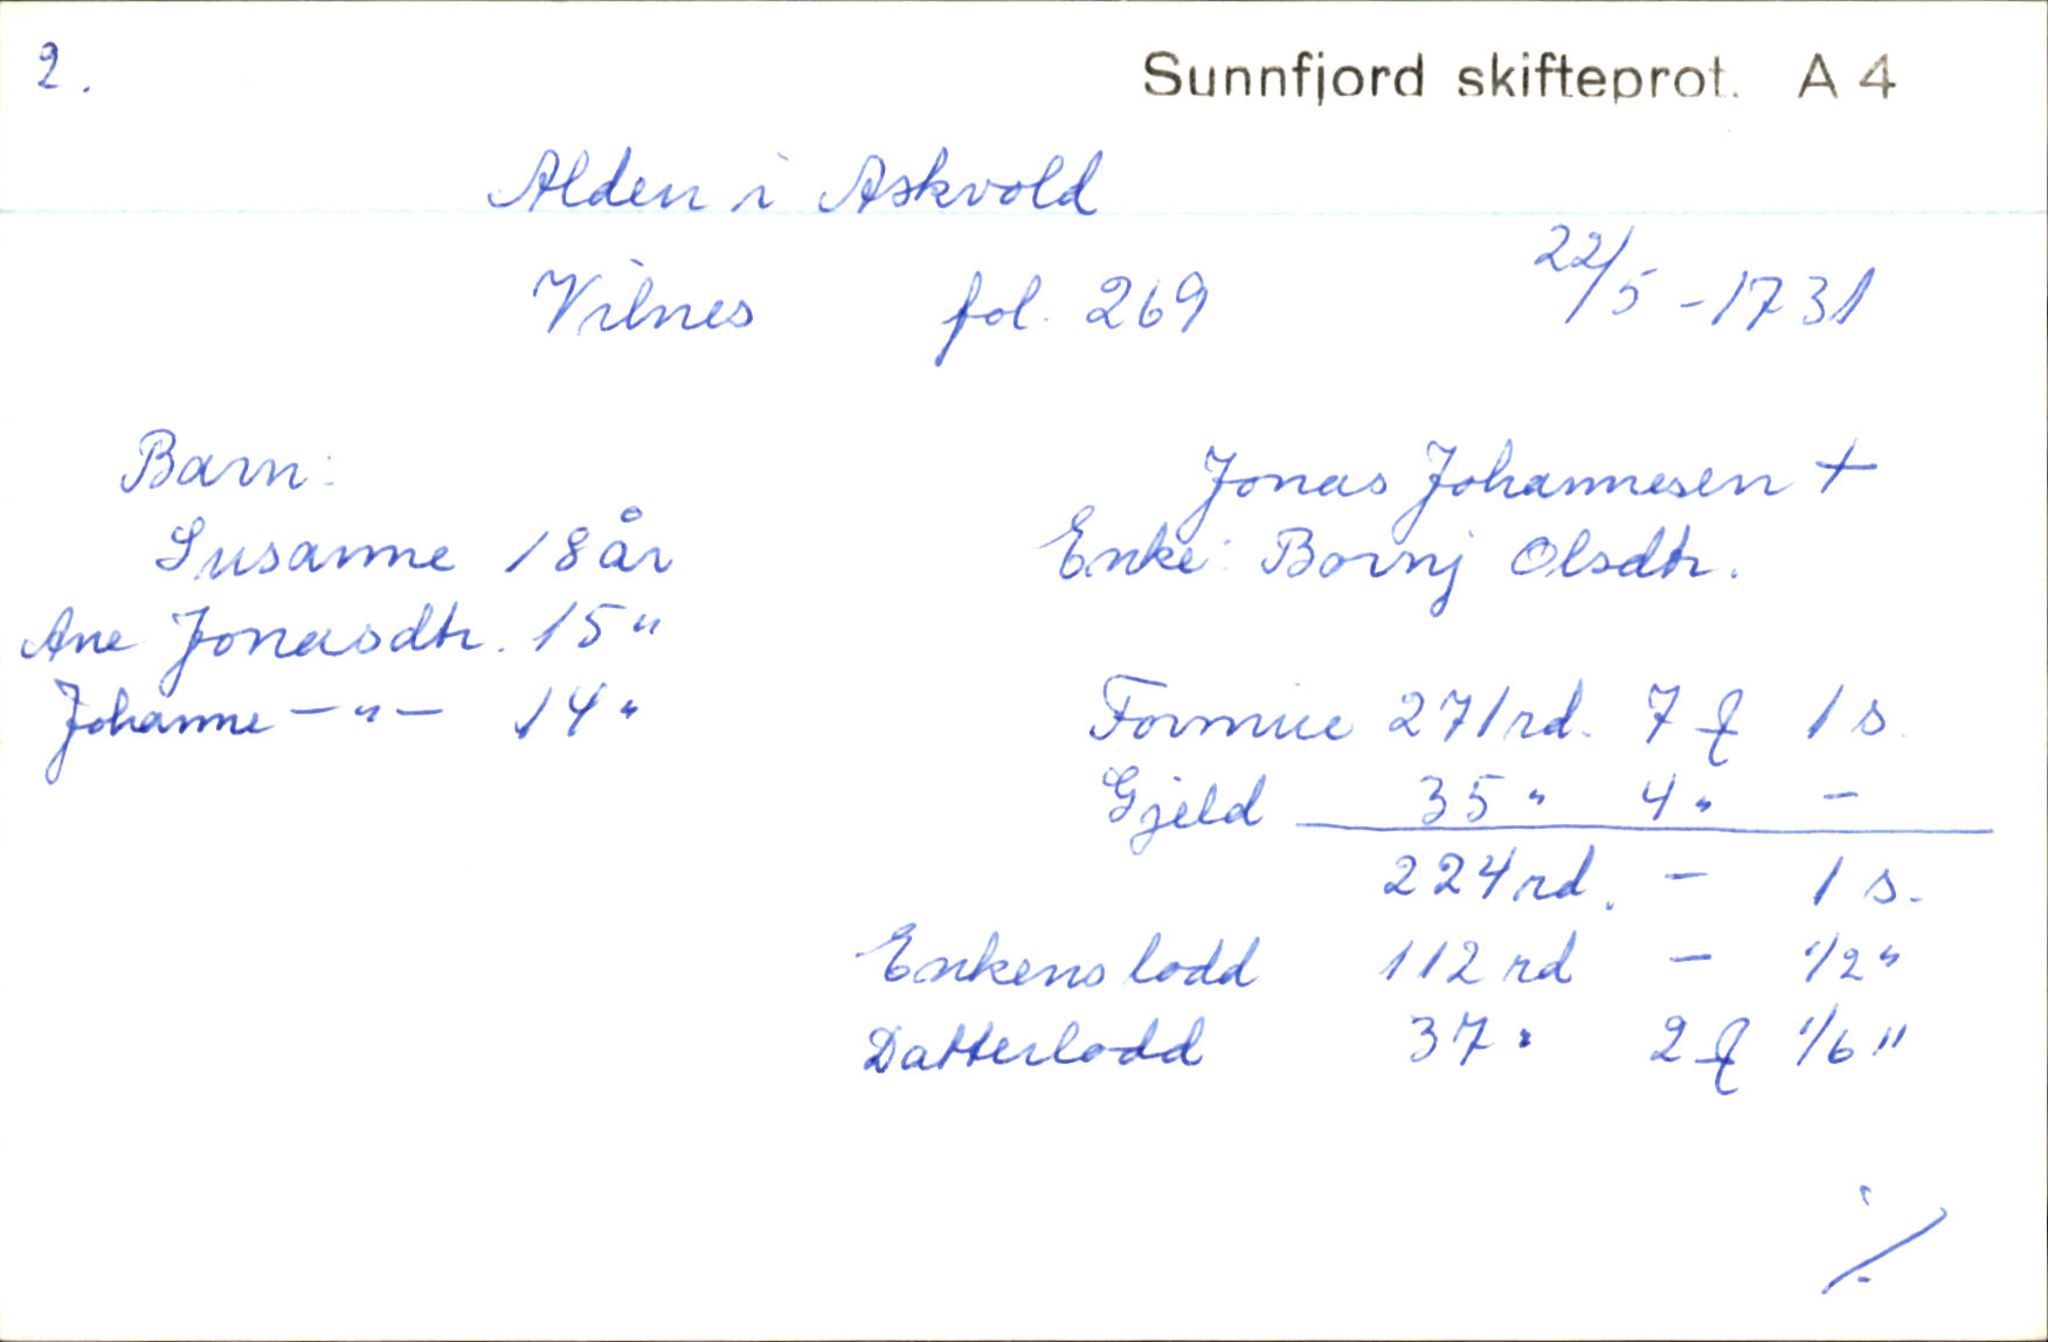 2.
Sunnfjord skifteprot. A 4
Alden i Askvold
Vilnes fol. 269 22/5 - 1731
Barn:
Susanne 18 år
Ane Jonasdtr. 15 "
Johanne — " — 14 "
Jonas Johannesen +
Enke: Bornj Olsdtr.
Formue 271 rd. 7 ₰ 1 s.
Gjeld 35 " 4 " -
224 rd. - 1 s.
Enkens lodd 112 rd - 1/2 "
Datterlodd 37 " 2 ₰ 1/6 "
./.